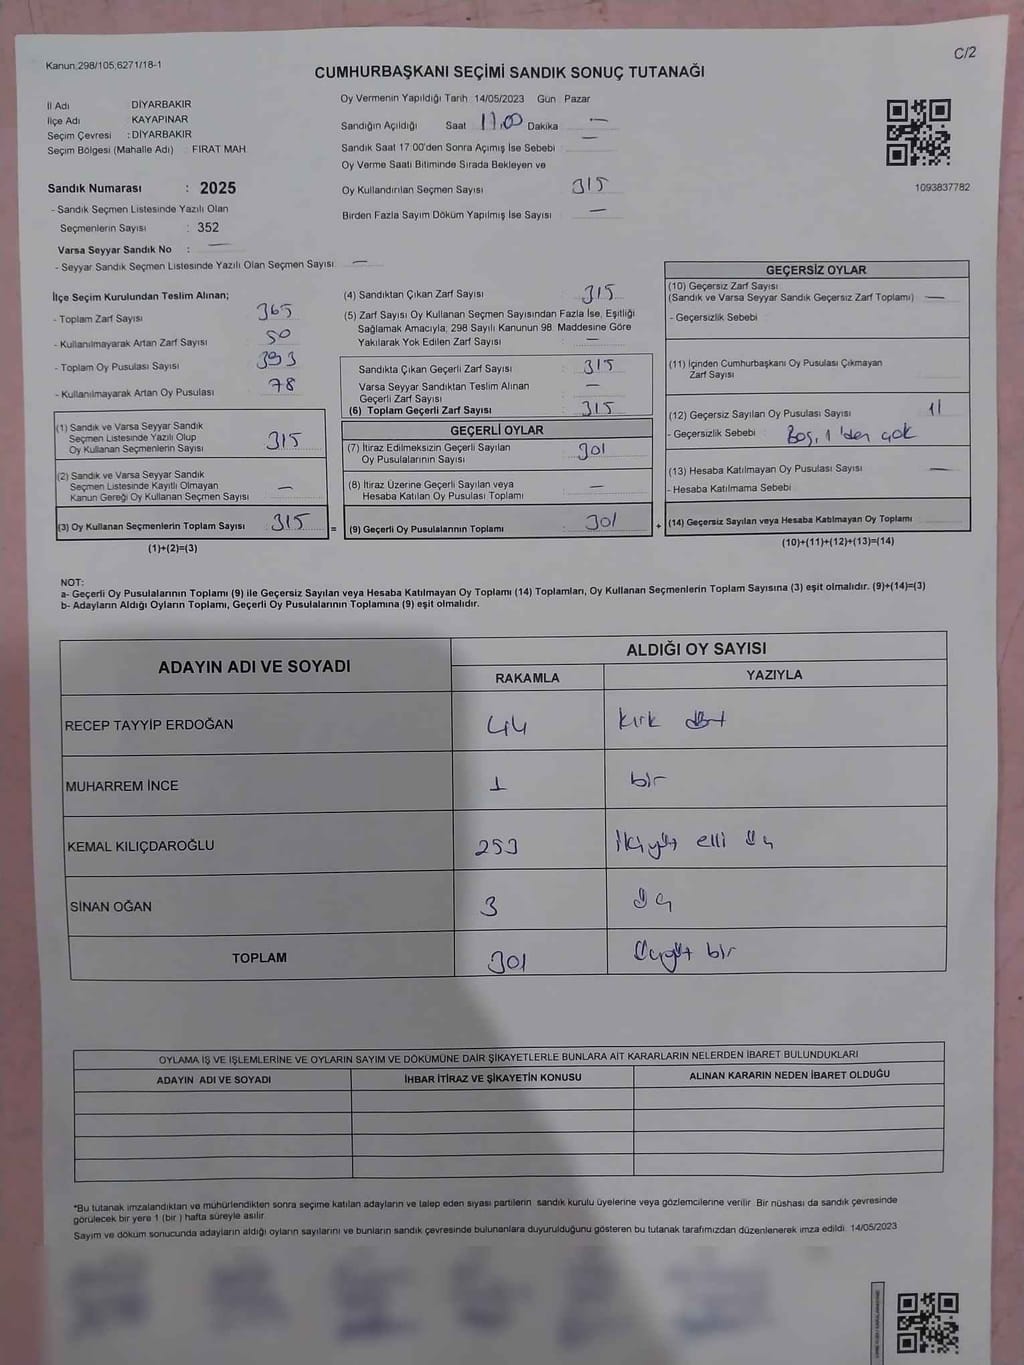 Kanun,298/105,6271/18-1
C/2
CUMHURBAŞKANI SEÇİMİ SANDIK SONUÇ TUTANAĞI
İl Adı DİYARBAKIR
İlçe Adı KAYAPINAR
Seçim Çevresi : DİYARBAKIR
Seçim Bölgesi (Mahalle Adı) FIRAT MAH.
Sandık Numarası : 2025
- Sandık Seçmen Listesinde Yazılı Olan
Seçmenlerin Sayısı : 352
Varsa Seyyar Sandık No : —
- Seyyar Sandık Seçmen Listesinde Yazılı Olan Seçmen Sayısı —
Oy Vermenin Yapıldığı Tarih 14/05/2023 Gün Pazar
Sandığın Açıldığı Saat 17.00 Dakika —
Sandık Saat 17:00'den Sonra Açımış İse Sebebi —
Oy Verme Saati Bitiminde Sırada Bekleyen ve
Oy Kullandırılan Seçmen Sayısı 315
Birden Fazla Sayım Döküm Yapılmış İse Sayısı —
1093837782
İlçe Seçim Kurulundan Teslim Alınan;
- Toplam Zarf Sayısı 365
- Kullanılmayarak Artan Zarf Sayısı 50
- Toplam Oy Pusulası Sayısı 393
- Kullanılmayarak Artan Oy Pusulası 78
(1) Sandık ve Varsa Seyyar Sandık
Seçmen Listesinde Yazılı Olup
Oy Kullanan Seçmenlerin Sayısı 315
(2) Sandık ve Varsa Seyyar Sandık
Seçmen Listesinde Kayıtlı Olmayan
Kanun Gereği Oy Kullanan Seçmen Sayısı —
(3) Oy Kullanan Seçmenlerin Toplam Sayısı 315 =
(1)+(2)=(3)
(4) Sandıktan Çıkan Zarf Sayısı 315
(5) Zarf Sayısı Oy Kullanan Seçmen Sayısından Fazla İse, Eşitliği
Sağlamak Amacıyla, 298 Sayılı Kanunun 98. Maddesine Göre
Yakılarak Yok Edilen Zarf Sayısı —
Sandıkta Çıkan Geçerli Zarf Sayısı 315
Varsa Seyyar Sandıktan Teslim Alınan
Geçerli Zarf Sayısı —
(6) Toplam Geçerli Zarf Sayısı 315
GEÇERLİ OYLAR
(7) İtiraz Edilmeksizin Geçerli Sayılan
Oy Pusulalarının Sayısı 301
(8) İtiraz Üzerine Geçerli Sayılan veya
Hesaba Katılan Oy Pusulası Toplamı —
(9) Geçerli Oy Pusulalarının Toplamı 301 +
GEÇERSİZ OYLAR
(10) Geçersiz Zarf Sayısı
(Sandık ve Varsa Seyyar Sandık Geçersiz Zarf Toplamı) —
- Geçersizlik Sebebi
(11) İçinden Cumhurbaşkanı Oy Pusulası Çıkmayan
Zarf Sayısı
(12) Geçersiz Sayılan Oy Pusulası Sayısı 11
- Geçersizlik Sebebi Boş, 1'den çok
(13) Hesaba Katılmayan Oy Pusulası Sayısı —
- Hesaba Katılmama Sebebi
(14) Geçersiz Sayılan veya Hesaba Katılmayan Oy Toplamı
(10)+(11)+(12)+(13)=(14)
NOT:
a- Geçerli Oy Pusulalarının Toplamı (9) ile Geçersiz Sayılan veya Hesaba Katılmayan Oy Toplamı (14) Toplamları, Oy Kullanan Seçmenlerin Toplam Sayısına (3) eşit olmalıdır. (9)+(14)=(3)
b- Adayların Aldığı Oyların Toplamı, Geçerli Oy Pusulalarının Toplamına (9) eşit olmalıdır.
ADAYIN ADI VE SOYADI
ALDIĞI OY SAYISI
RAKAMLA YAZIYLA
RECEP TAYYİP ERDOĞAN 44 kırk dört
MUHARREM İNCE 1 bir
KEMAL KILIÇDAROĞLU 253 İkiyüz elli üç
SİNAN OĞAN 3 üç
TOPLAM 301 Üçyüz bir
OYLAMA İŞ VE İŞLEMLERİNE VE OYLARIN SAYIM VE DÖKÜMÜNE DAİR ŞİKAYETLERLE BUNLARA AİT KARARLARIN NELERDEN İBARET BULUNDUKLARI
ADAYIN ADI VE SOYADI İHBAR İTİRAZ VE ŞİKAYETİN KONUSU ALINAN KARARIN NEDEN İBARET OLDUĞU
*Bu tutanak imzalandıktan ve mühürlendikten sonra seçime katılan adayların ve talep eden siyasi partilerin sandık kurulu üyelerine veya gözlemcilerine verilir. Bir nüshası da sandık çevresinde
görülecek bir yere 1 (bir) hafta süreyle asılır.
Sayım ve döküm sonucunda adayların aldığı oyların sayılarını ve bunların sandık çevresinde bulunanlara duyurulduğunu gösteren bu tutanak tarafımızdan düzenlenerek imza edildi. 14/05/2023